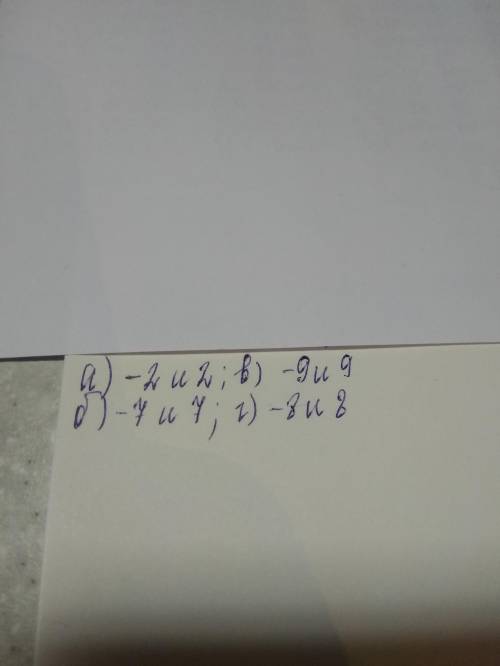 а) -2 и 2; в) -9 и 9
б) -7 и 7; г) -8 и 8